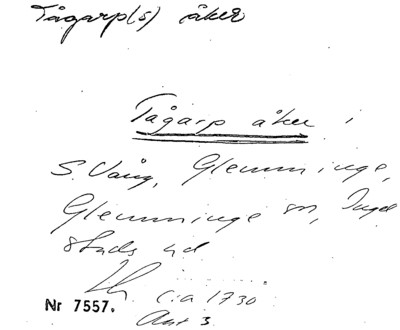 Tågarp(s) åker
Tågarp åker i
S. Vång, Glemminge,
Glemminge sn, Inge
stads hd
Lh ca 1730
Nr 7557.
Akt 3